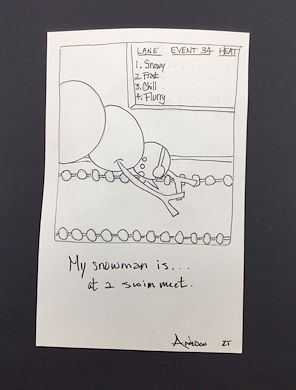 LANE EVENT 34 HEAT
1. Snowy
2. Frost
3. Chill
4. Flurry
My snowman is...
at a swim meet.